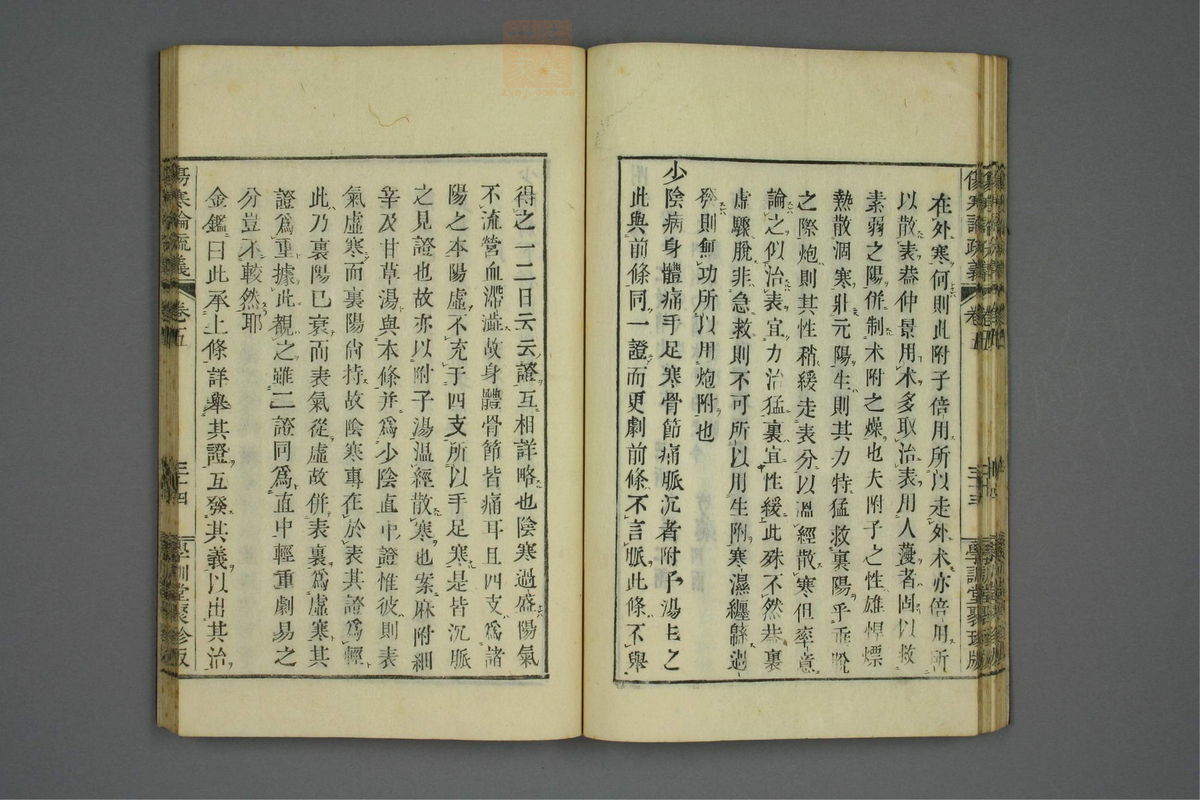 傷寒論疏義 卷五 三十三 學訓堂聚珍版
在外寒何則此附子倍用所以走外朮亦倍用所
以散表葢仲景用朮多取治表用人蓡者固以救
素弱之陽併制朮附之燥也夫附子之性雄悍熛
熱散涸寒壯元陽生則其力特猛救裏陽乎垂脫
之際炮則其性稍緩走表分以溫經散寒但率意
論之似治表宜力治猛裏宜性緩此殊不然葢裏
虛驟脫非急救則不可所以用生附寒濕纏緜過
發則無功所以用炮附也
少陰病身體痛手足寒骨節痛脈沉者附子湯主之
此與前條同一證而更劇前條不言脈此條不舉
得之一二日云云證互相詳略也陰寒過盛陽氣
不流營血滯澁故身體骨節皆痛耳且四支爲諸
陽之本陽虛不充于四支所以手足寒是皆沉脈
之見證也故亦以附子湯溫經散寒也案麻附細
辛及甘草湯與本條并爲少陰直中證惟彼則表
氣虛寒而裏陽尙持故陰寒專在於表其證爲輕
此乃裏陽已衰而表氣從虛故併表裏爲虛寒其
證爲重據此觀之雖二證同爲直中輕重劇易之
分豈不較然耶
金鑑曰此承上條詳舉其證互發其義以出其治
傷寒論疏義 卷五 三十四 學訓堂聚珍版